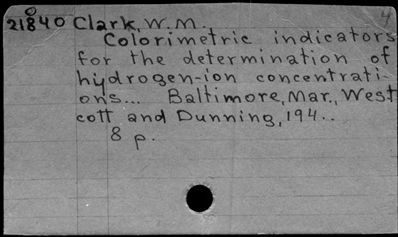 4
21840 Clark, W. M.
Colorimetric indicators
for the determination of
hydrogen-ion concentrati-
ons... Baltimore, Mar., West
cott and Dunning, 194..
8 p.